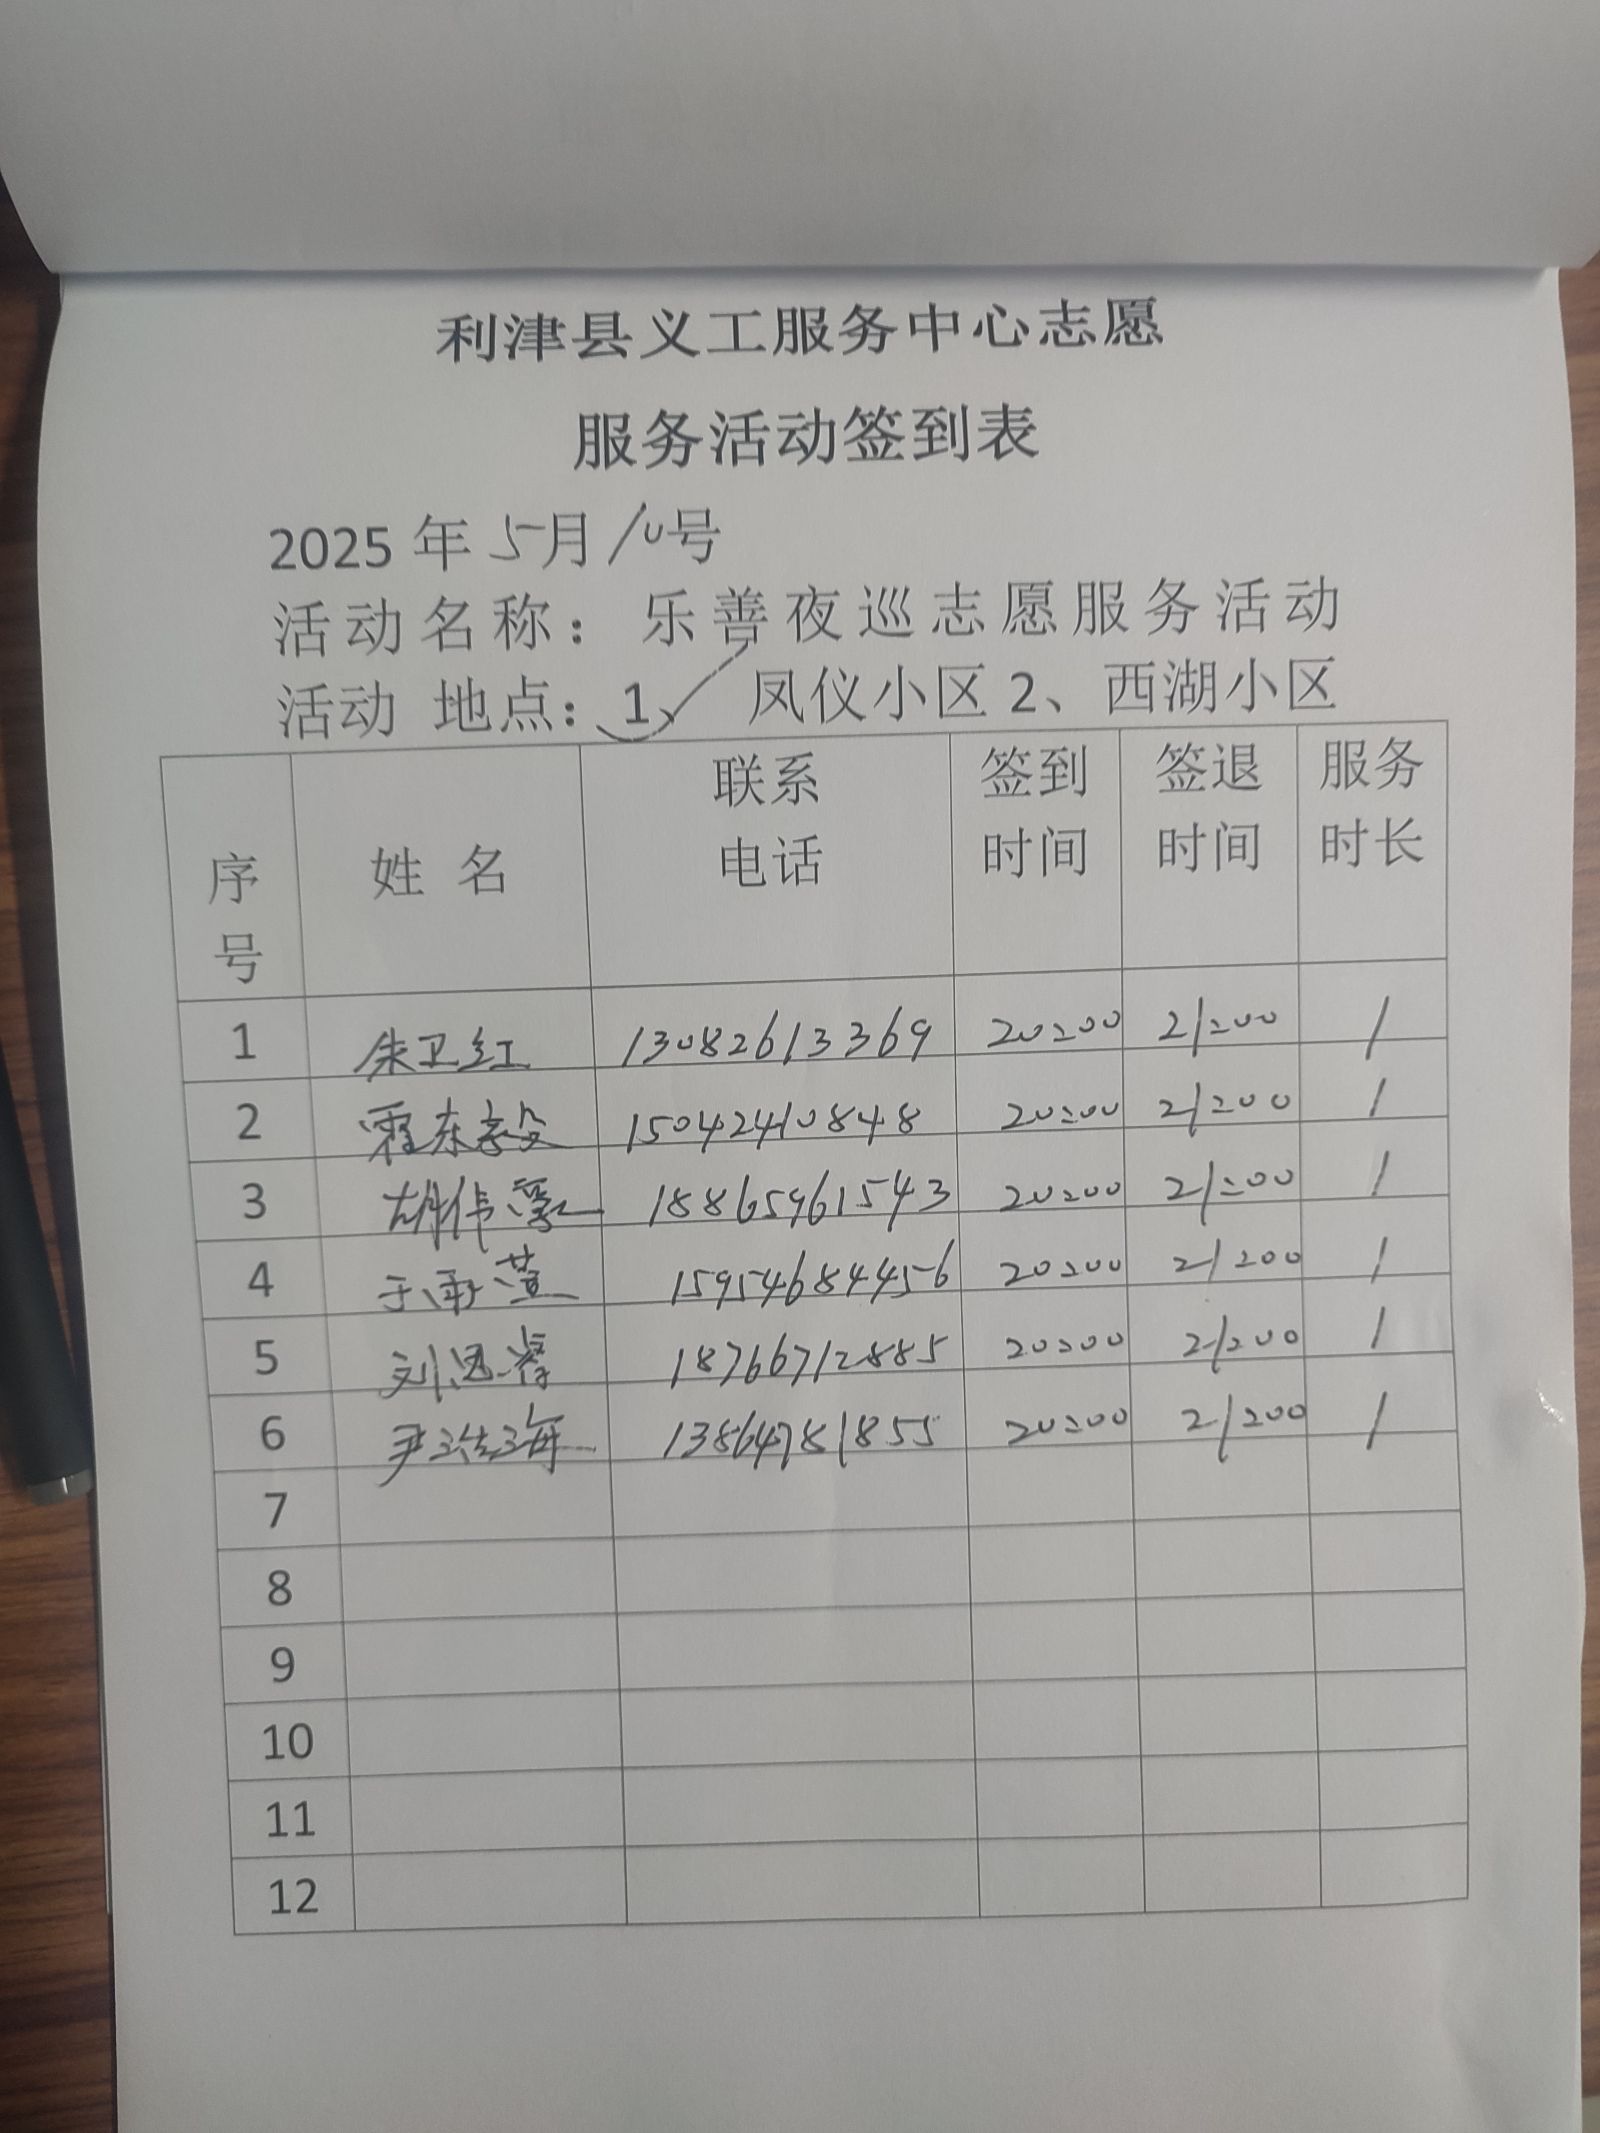 利津县义工服务中心志愿
服务活动签到表
2025 年 5月 10号
活动名称：乐善夜巡志愿服务活动
活动 地点：1、 凤仪小区 2、西湖小区
序号 姓 名 联系电话 签到时间 签退时间 服务时长
1 朱卫红 13082613369 20:00 21:00 1
2 霍东毅 15042410848 20:00 21:00 1
3 胡伟 18865961543 20:00 21:00 1
4 于雨萱 15954684456 20:00 21:00 1
5 刘思 18766712885 20:00 21:00 1
6 尹浩海 13864781855 20:00 21:00 1
7
8
9
10
11
12